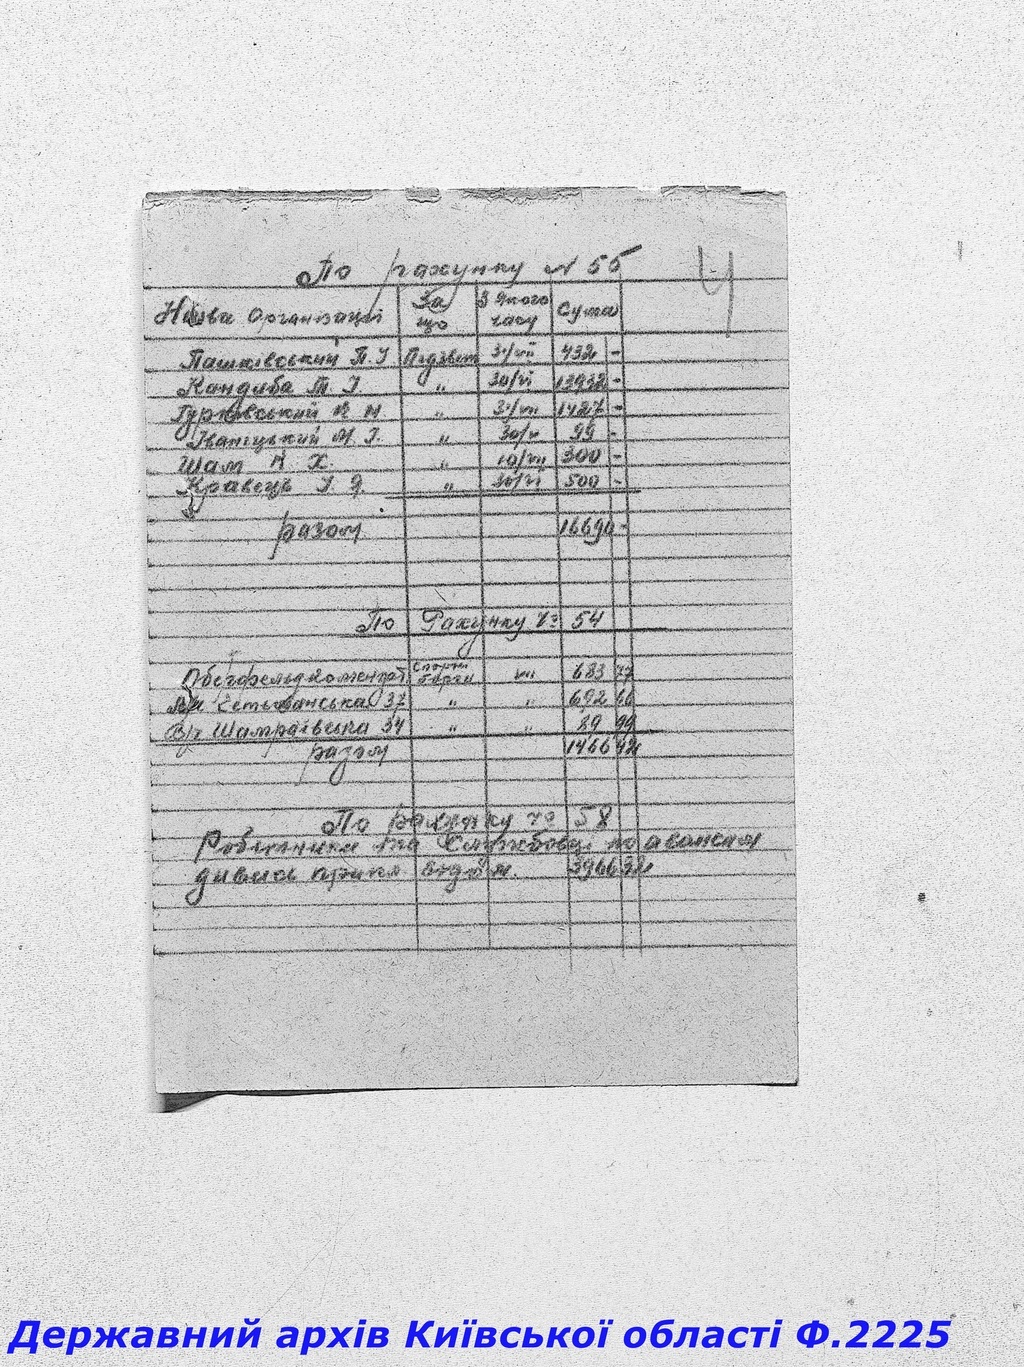 По рахунку № 55
4
Назва Організації За що З якого часу Сума
Пашківський П. І Підзвіт 31/VII 432 -
Кандиба Т. І. " 30/VI 13932 -
Гурковський К Н " 31/VII 1427 -
Іваніцький М. І. " 30/V 99 -
Шам Н Х. " 10/VII 300 -
Кравець І Я. " 30/VI 500 -
разом 16690 -
По Рахунку № 54
Спорні борги VII 683 77
37 " " 692 66
В/ч Шамраївська 34 " " 89 99
разом 1466 42
По рахунку № 58
Робітники та Службовці по авансам
дивись прикл відом. 3966 32
Державний архів Київської області Ф.2225